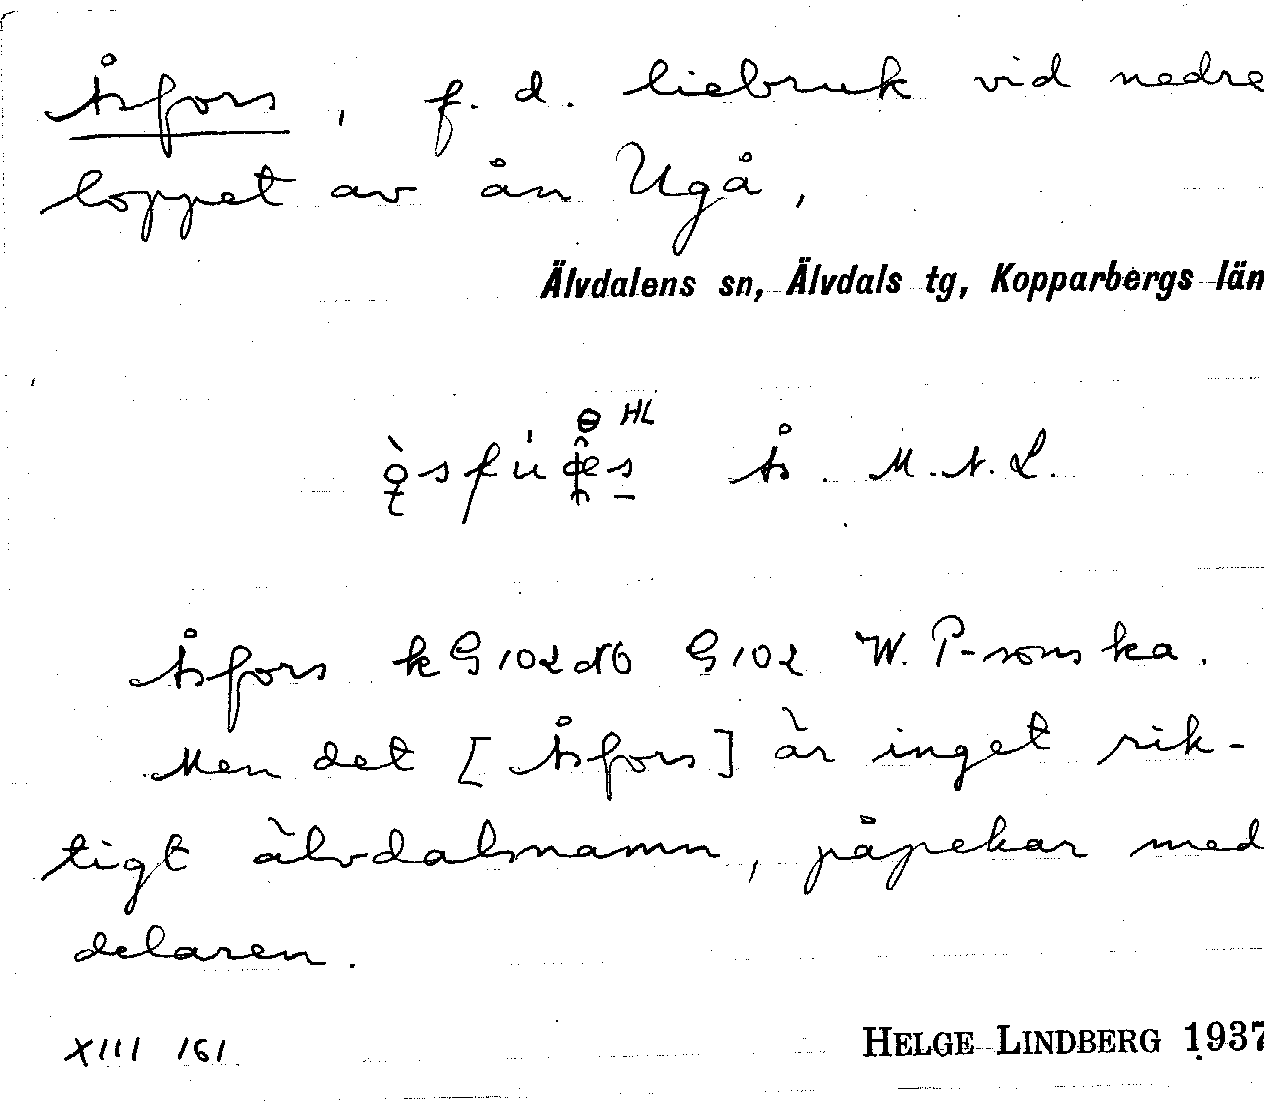 Åsfors, f.d. liebruk vid nedre
loppet av ån Ugå,
Älvdalens sn, Älvdals tg, Kopparbergs län
HL
Ås. M.N.L.
Åsfors k G 102 d 16 G 102 W. P-sonska.
Men det [Åsfors] är inget rik-
tigt älvdalsnamn, påpekar med
delaren.
XIII 161
HELGE LINDBERG 1937